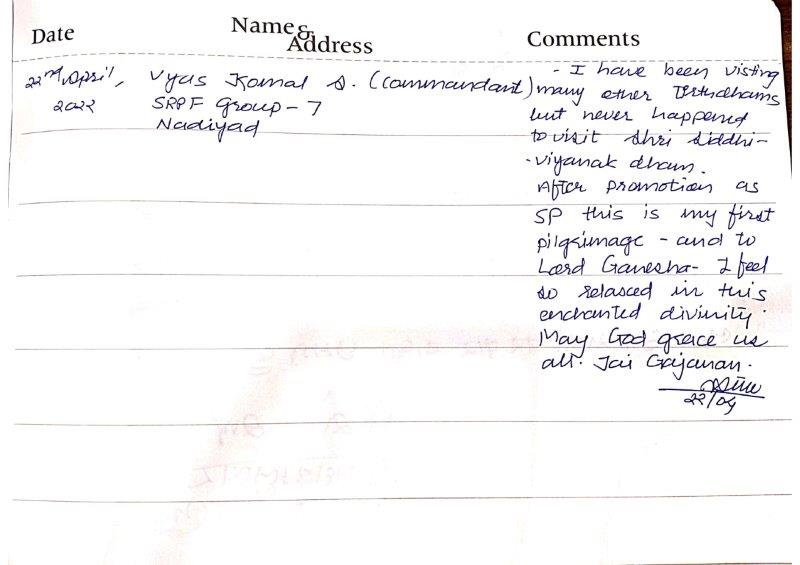 Date
Name &
Address
Comments
22nd April,
2022
Vyas Komal S. (Commandant)
SRPF Group - 7
Nadiyad
- I have been visting
many other Tirthdhams
but never happened
to visit Shri Siddhi-
-viyanak dham.
After promotion as
SP this is my first
pilgrimage - and to
Lord Ganesha - I feel
so relaxed in this
enchanted divinity.
May God grace us
all. Jai Gajanan.
22/04